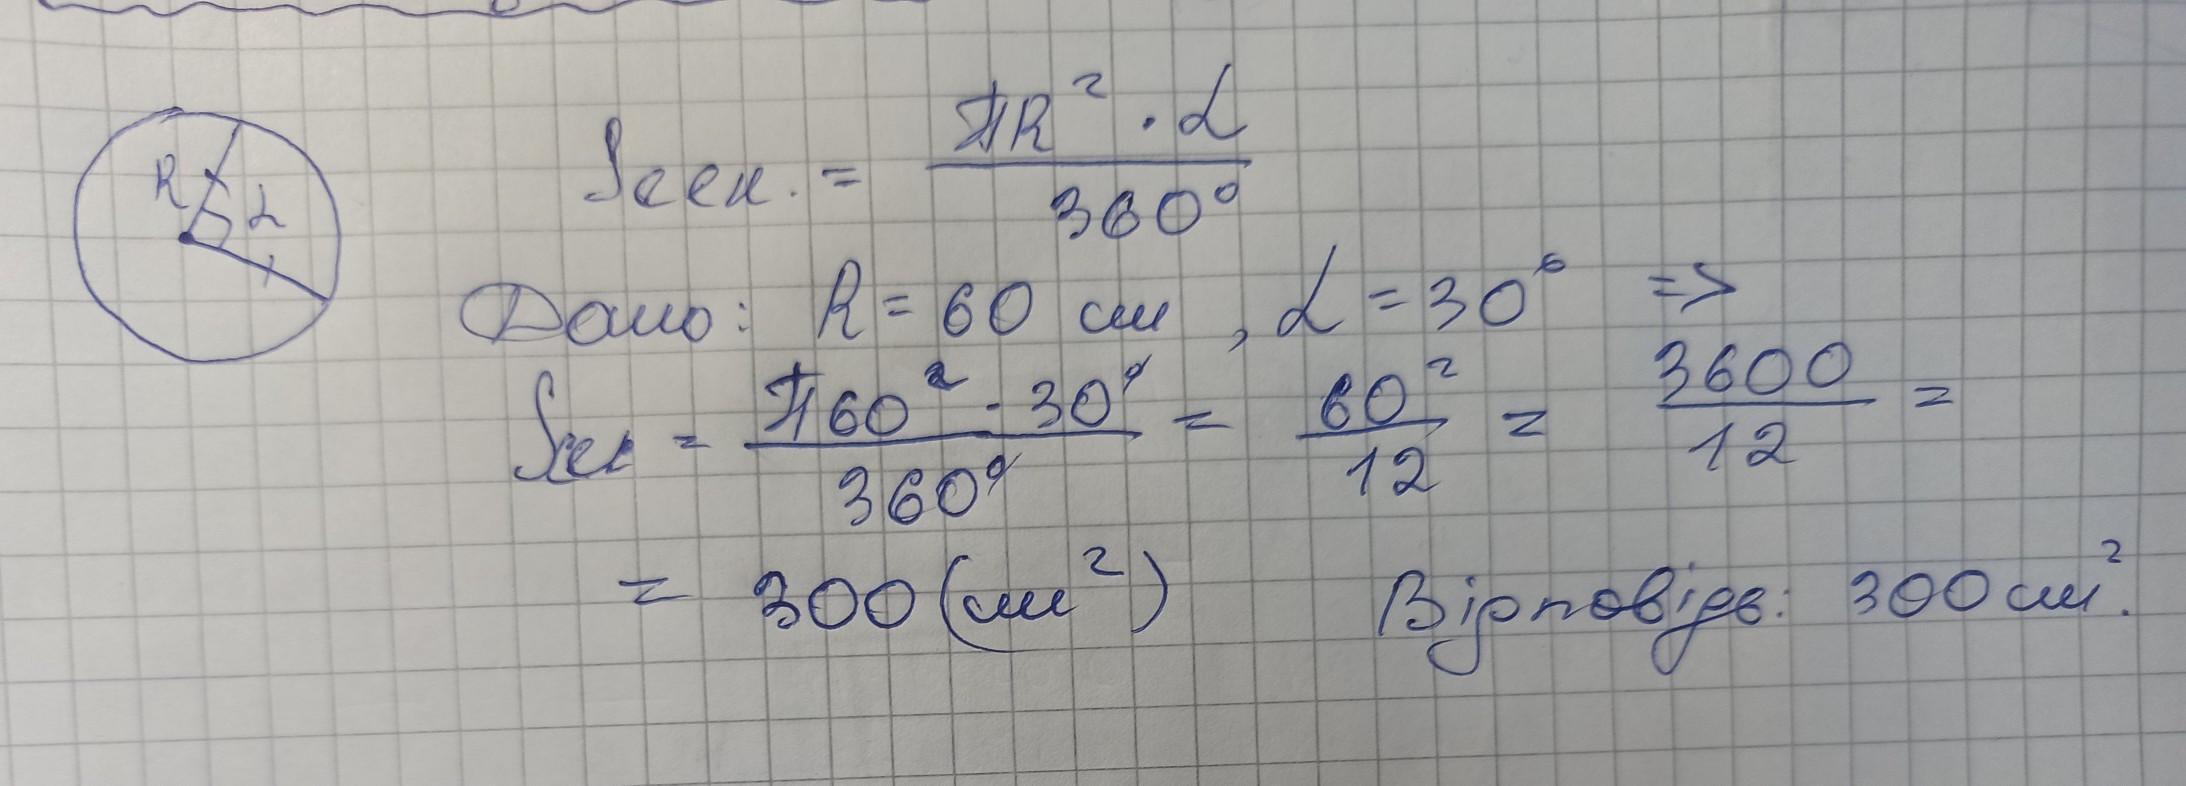 R α
Sсек. = πR² · α / 360°
Дано: R = 60 см, α = 30° =>
Sсек = π60² · 30° / 360° = 60² / 12 = 3600 / 12 =
= 300 (см²) Відповідь: 300 см².